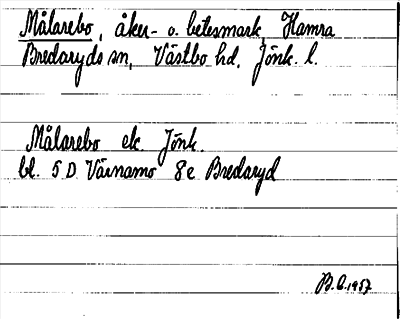 Målarebo, åker- o. betesmark, Hamra
Bredaryds sn, Västbo hd, Jönk. l.
Målarebo ek. Jönk.
bl. 5 D Värnamo 8e Bredaryd
1957